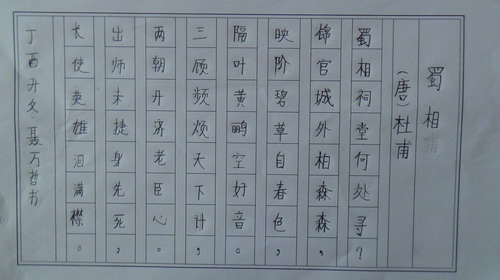 蜀相
(唐)杜甫
蜀相祠堂何处寻?
锦官城外柏森森,
映阶碧草自春色,
隔叶黄鹂空好音。
三顾频烦天下计,
两朝开济老臣心。
出师未捷身先死,
长使英雄泪满襟。
丁酉开冬·聂万哲书